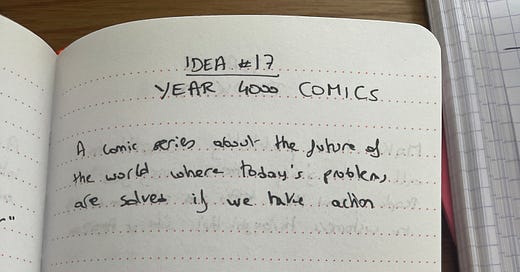 IDEA #17
YEAR 4000 COMICS
A comic series about the future of
the world where today's problems
are solved if we take action
"